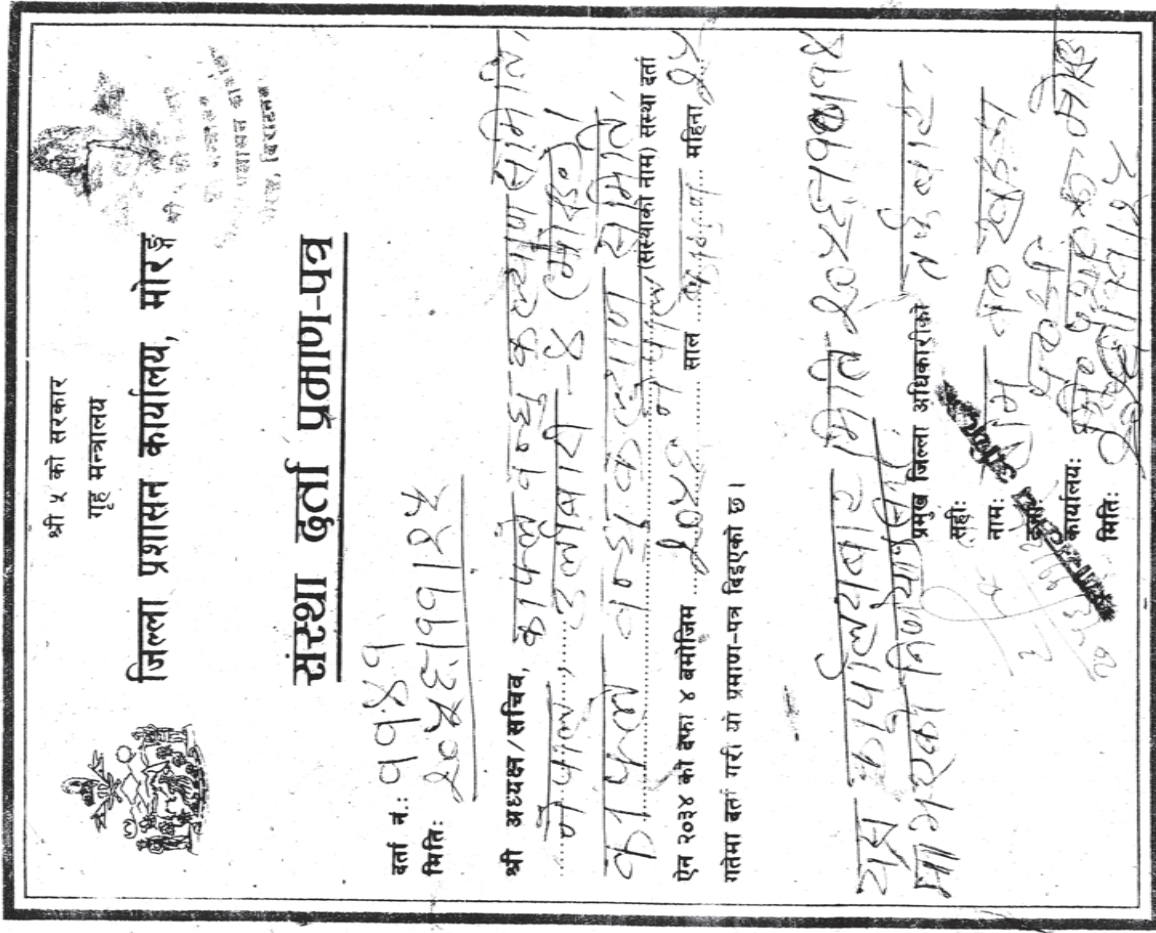 श्री ५ को सरकार
गृह मन्त्रालय
जिल्ला प्रशासन कार्यालय, मोरङ्ग
संस्था दर्ता प्रमाण-पत्र
दर्ता नं.: ११४१
मिति: २०५६।११।२५
श्री अध्यक्ष/सचिव, काफ्ले बन्धु कल्याण समिति,
नेपाल, उर्लाबारी -४ (मोरङ)।
काफ्ले बन्धु कल्याण समिति,
नेपाल (संस्थाको नाम) संस्था दर्ता
ऐन २०३४ को दफा ४ बमोजिम २०५६ साल फाल्गुण महिना २५
गतेमा दर्ता गरी यो प्रमाण-पत्र दिइएको छ।
यस कार्यालयबाट मिति २०५६।११
मा भएको निर्णयानुसार
प्रमुख जिल्ला अधिकारीको तर्फ बाट,
सही:
नाम: खड्का
दर्जा:
कार्यालय: जि० प्र० का० मोरङ
मिति: